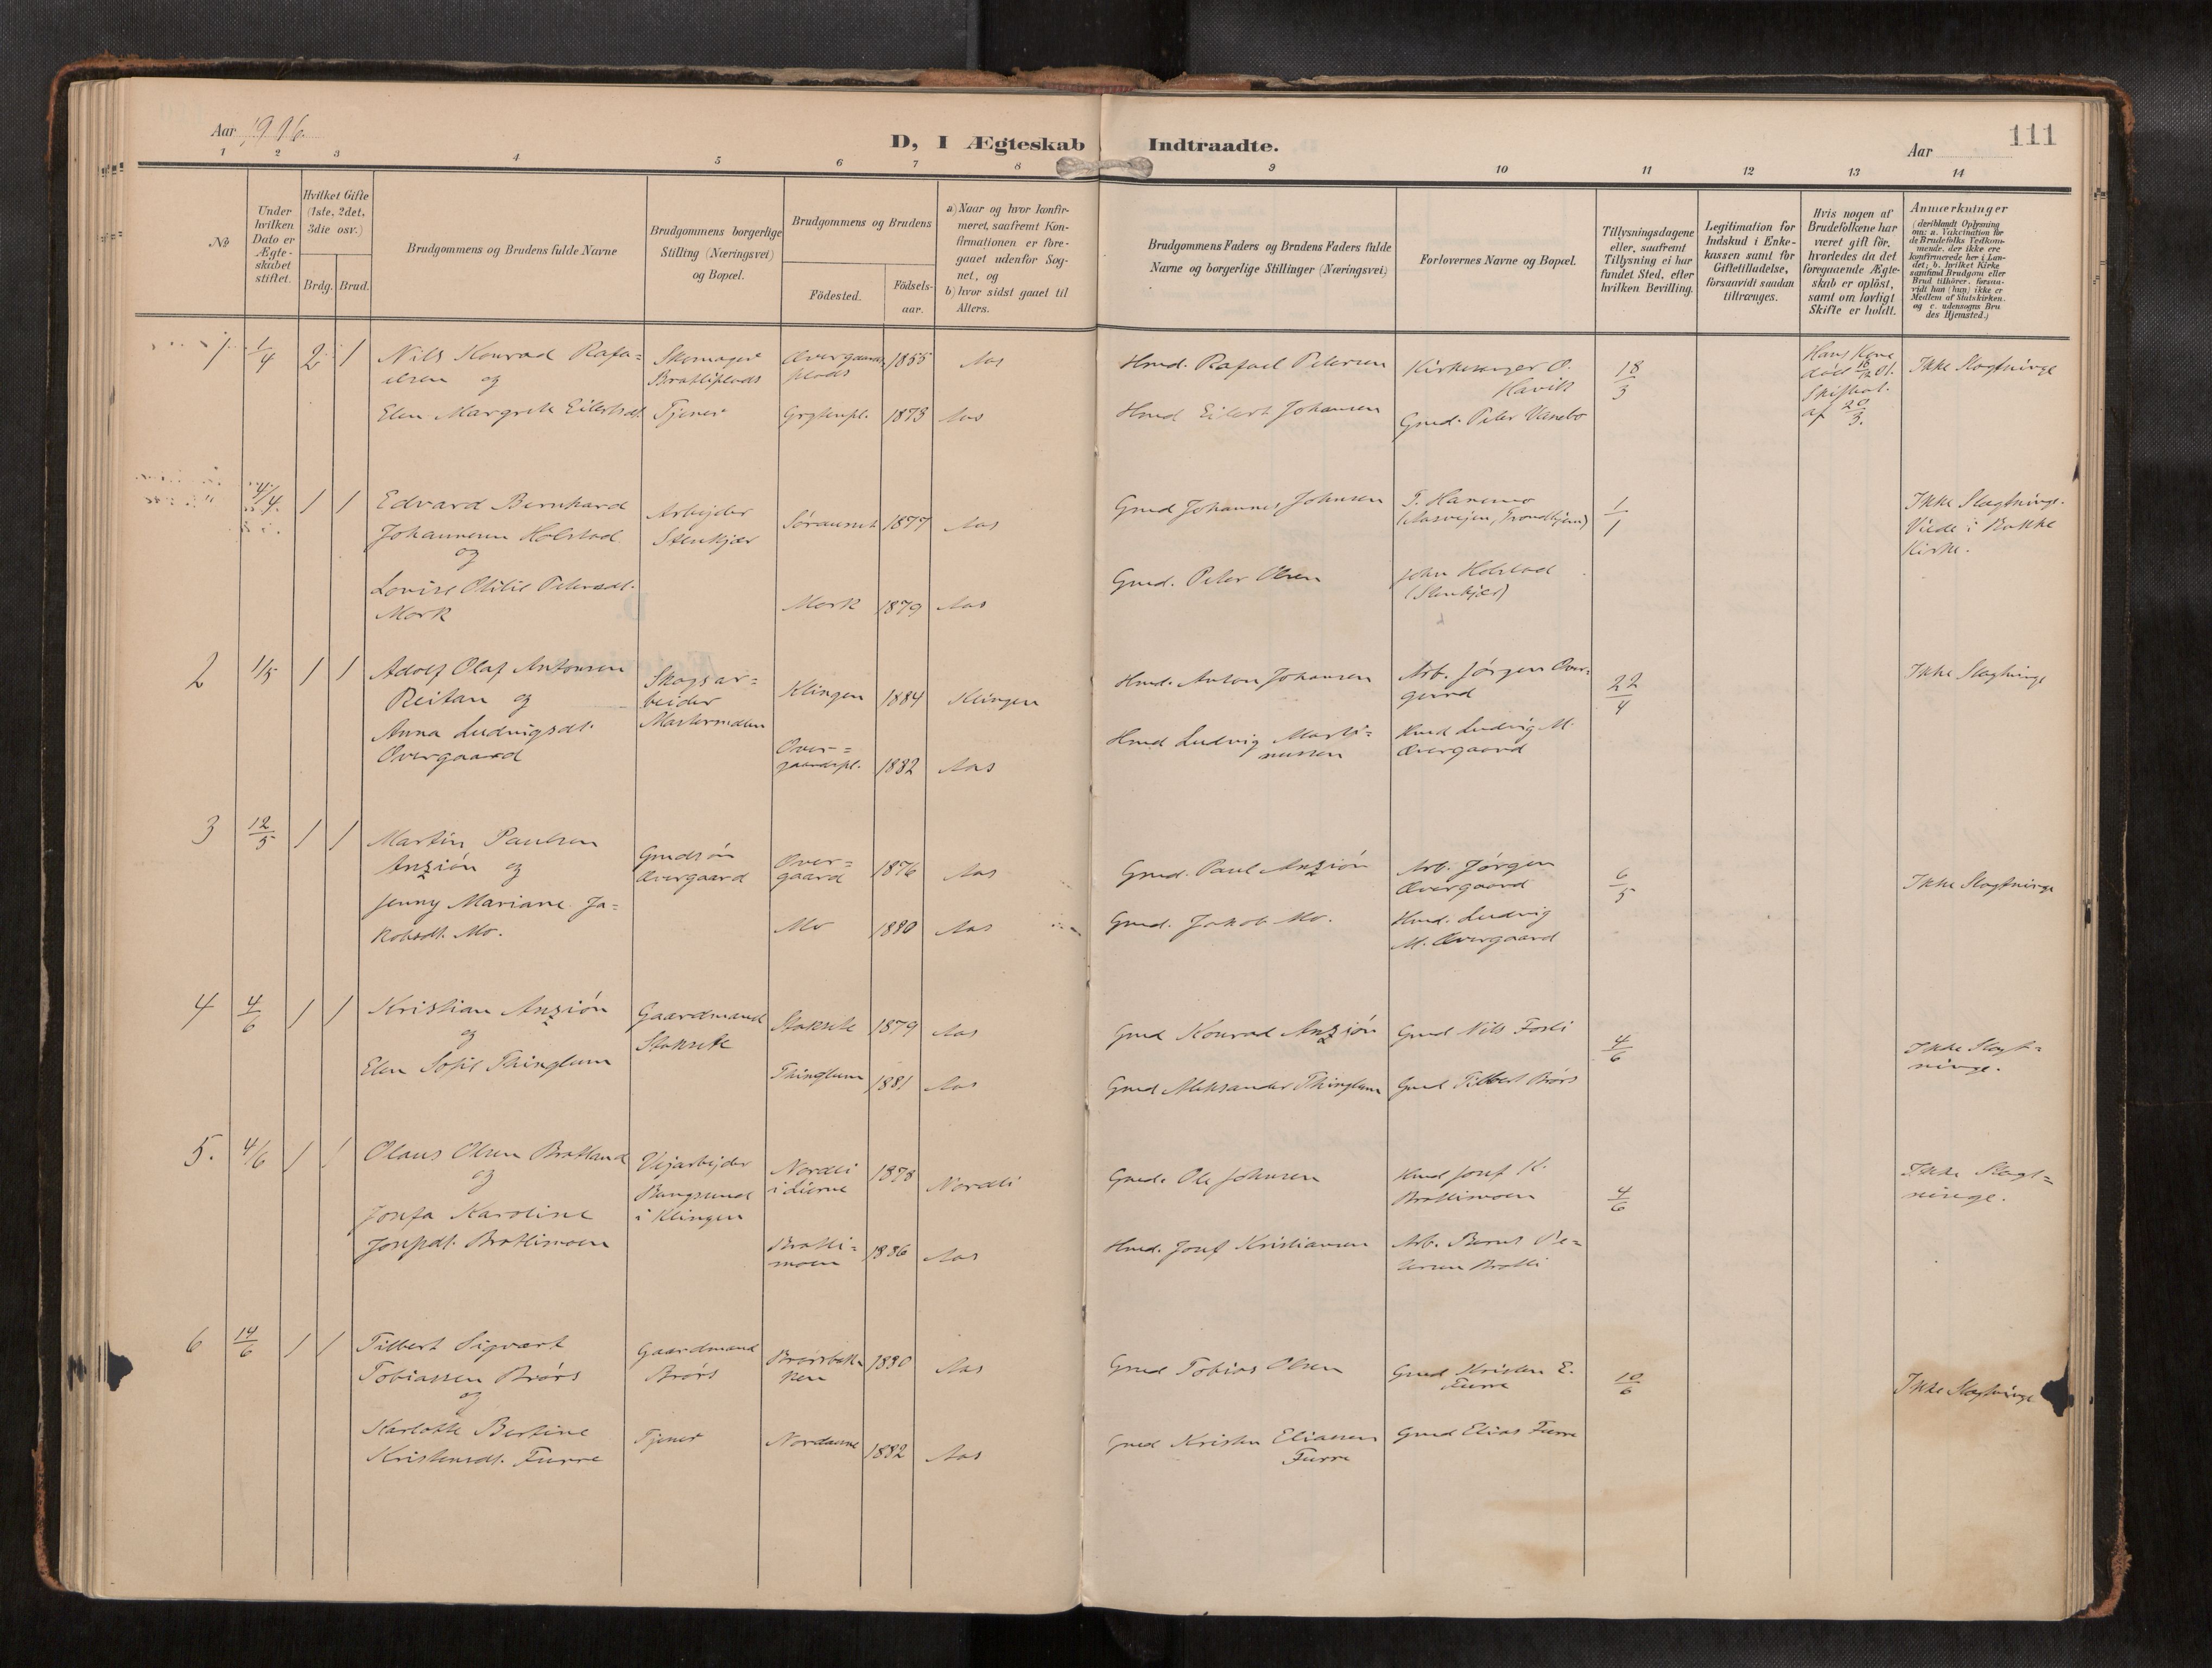 Aar
D, I Ægteskab Indtraadte.
Aar
111
1 2 3 4 5 6 7 8 9 10 11 12 13 14
№
Under
hvilken
Dato er
Ægte-
skabet
stiftet.
Hvilket Gifte
(1ste, 2det,
3die osv.)
Brdg. Brud.
Brudgommens og Brudens fulde Navne
Brudgommens borgerlige
Stilling (Næringsvei)
og Bopæl.
Brudgommens og Brudens
Födested.
Födsels-
aar.
a) Naar og hvor konfir-
meret, saafremt Kon-
firmationen er fore-
gaaet udenfor Sog-
net, og
b) hvor sidst gaaet til
Alters.
Brudgommens Faders og Brudens Faders fulde
Navne og borgerlige Stillinger (Næringsvei)
Forlovernes Navne og Bopæl.
Tillysningsdagene
eller, saafremt
Tillysning ei har
fundet Sted, efter
hvilken Bevilling.
Legitimation for
Indskud i Enke-
kassen samt for
Giftetilladelse,
forsaavidt saadan
tiltrænges.
Hvis nogen af
Brudefolkene har
været gift för,
hvorledes da det
foregaaende Ægte-
skab er oplöst,
samt om lovligt
Skifte er holdt.
Anmærkninger
(deriblandt Oplysning
om: a. Vakcination for
de Brudefolks Vedkom-
mende, der ikke ere
konfirmerede her i Lan-
det; b. hvilket Kirke
samfund Brudgom eller
Brud tilhörer, forsaa-
vidt han (hun) ikke er
Medlem af Statskirken,
og c. udensogns Bru
des Hjemsted.)
1 1/4 2 1
Nils Konrad Rafa=
elsen og
Elen Margrete Eilertsdt.
Skomager
Bratliplads
Tjener
Overgaards
plads 1855 Aas
1873 Aas
Hmd. Rafael Petersen
Hmd Eilert Johansen
Kirkesanger O.
Gmd. Peter Vanebo
18/3
Hans Kone
död
af 20/3.
Ikke Slagtninge
4/4. 1 1
Edvard Bernhard
Johannesen Holstad
og
Lovise Otilie Petersdt.
Mork
Arbejder
Stenkjær
1877 Aas
Mork 1879 Aas
Gmd Johannes Johnsen
Gmd. Peter Olsen
(Aasvejen, Trondhjem)
John Holstad
(Stenkjær)
1/1
Ikke Slagtninge.
Viede i Bakke
Kirke.
2 1/5 1 1
Adolf Olaf Antonsen
Reitan og
Anna Ludvigsdt.
Overgaard
Skogsar=
beider
Klingen 1884 Klingen
Over=
gaardspl. 1882 Aas
Hmd. Anton Johansen
Hmd Ludvig Marti=
nussen
Arb. Jørgen Over-
gaard
Hmd Ludvig M.
Overgaard
22/4
Ikke Slagtninge
3 12/5 1 1
Martin Paulsen
Anzión og
Jenny Mariane Ja=
kobsdt. Mo.
Gmdsön
Overgaard
Over=
gaard 1876 Aas
Mo 1880 Aas
Gmd. Paul Anzión
Gmd. Jakob Mo.
Arb. Jørgen
Overgaard
Hmd. Ludvig
M. Overgaard
6/5
Ikke Slagtninge
4 4/6 1 1
Kristian Anzión
og
Elen Sofie Thinglum
Gaardmand
Staksete
Staksete 1879 Aas
Thinglum 1881 Aas
Gmd Konrad Anzión
Gmd Aleksander Thinglum
Gmd Nils Fosli
Gmd Tilbert Brörs
4/6
Ikke Slagt=
ninge.
5. 4/6 1 1
Olaus Olsen Bratland
og
Josefa Karoline
Josefsdt. Bratlimoen
Vejarbejder
Bangsund
i Klingen
Nordli
i Lierne 1878 Nordli
Bratli=
moen 1886 Aas
Gmd. Ole Johnsen
Hmd. Josef Kristiansen
Hmd Josef K.
Bratlimoen
Arb. Bernt Pe=
tersen Bratli
4/6
Ikke Slagt=
ninge.
6 14/6 1 1
Tilbert Sigvart
Tobiassen Brörs
og
Karlotte Bertine
Kristensdt. Furre
Gaardmand
Brörs
Tjener
Brörsbak-
ken 1880 Aas
1882 Aas
Gmd Tobias Olsen
Gmd Kristen Eliassen
Furre
Gmd Kristen E.
Furre
Gmd Elias Furre
10/6
Ikke Slagtninge